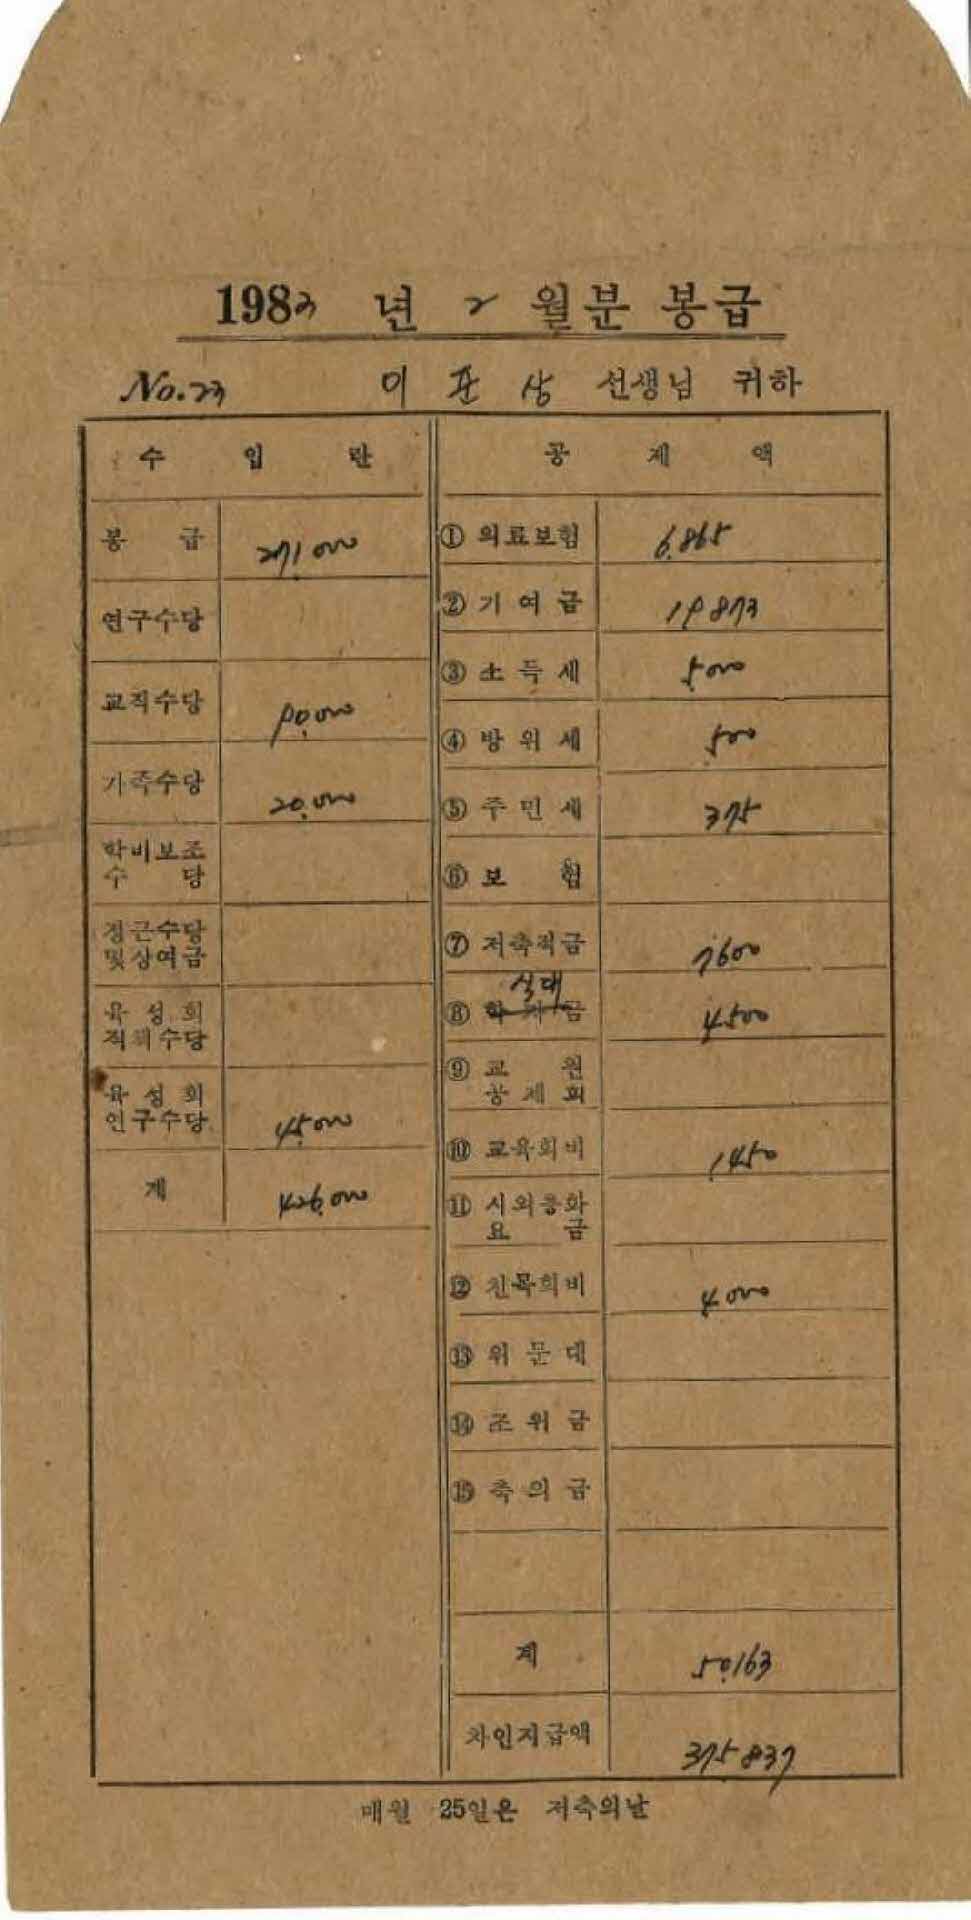 1983 년 2 월분 봉급
No. 23 이 표 상 선생님 귀하
수 입 란
봉 급 271,000
연구수당
교직수당 90,000
가족수당 20,000
학비보조
수 당
정근수당
및상여금
육 성 회
직책수당
육 성 회
연구수당 45,000
계 426,000
공 제 액
① 의료보험 6,865
② 기 여 금 19,873
③ 소 득 세 5,000
④ 방 위 세 500
⑤ 주 민 세 375
⑥ 보 험
⑦ 저축적금 7600
식대
⑧ 4500
⑨ 교 원
공 제 회
⑩ 교육회비 1,450
⑪ 시외통화
요 금
⑫ 친목회비 4,000
⑬ 위 문 대
⑭ 조 위 금
⑮ 축 의 금
계 50,163
차인지급액 375,837
매월 25일은 저축의날